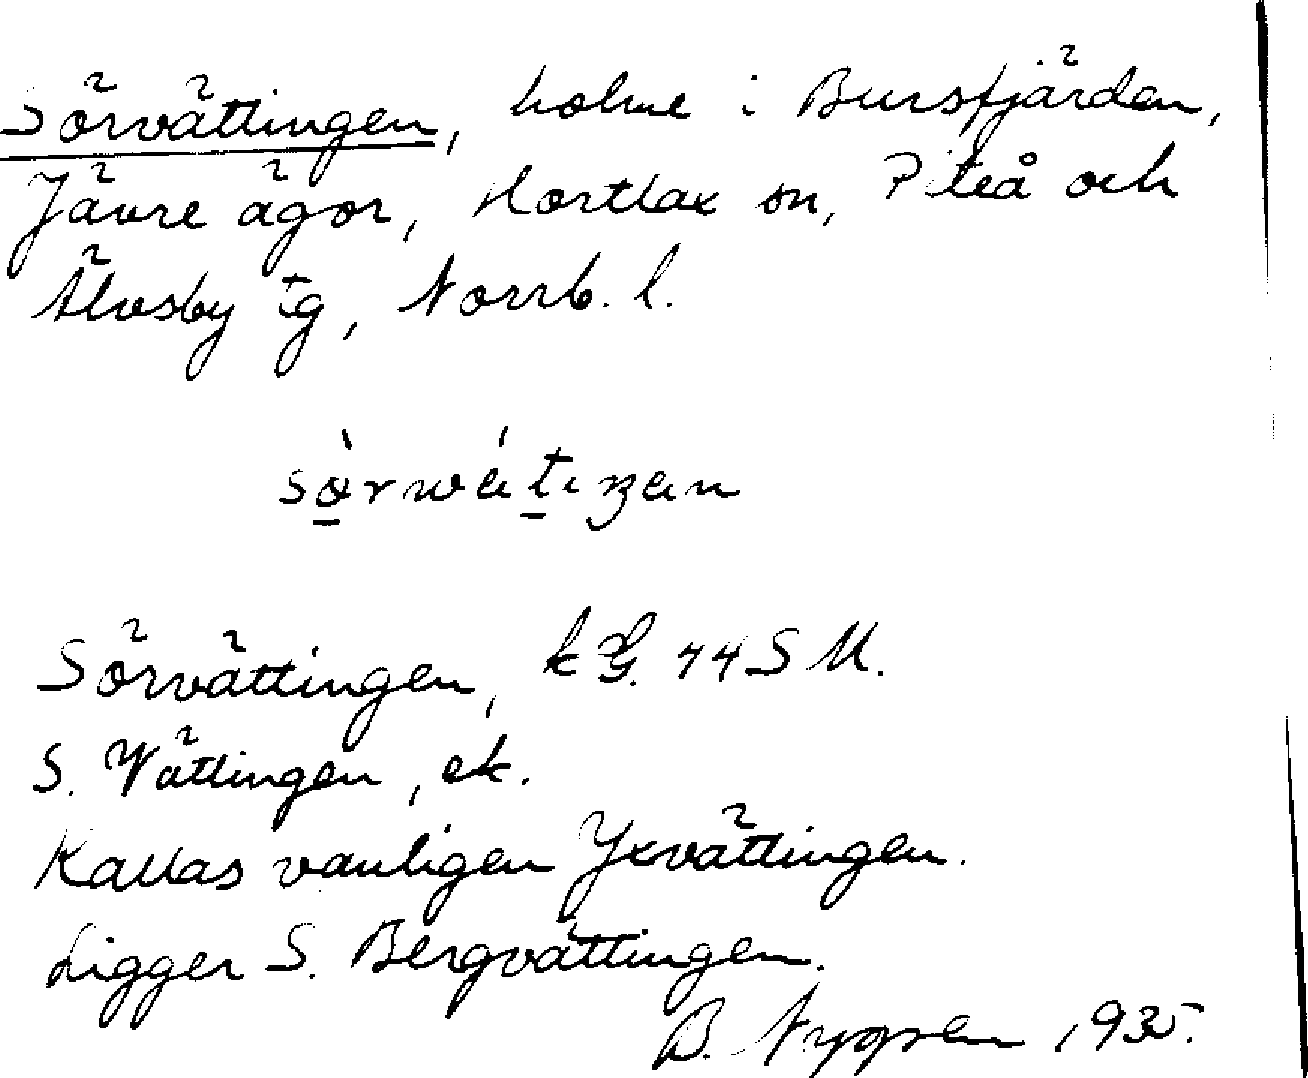 Sörvättingen, holme i Bursfjärden,
Jävre ägor, Hortlax sn, Piteå och
Älvsby tg, Norrb. l.
Sörvättingen, k 44 S M.
S. Vättingen, ek.
Kallas vanligen Yxvättingen.
Ligger S. Bergvättingen.
B. Nygren 1935.